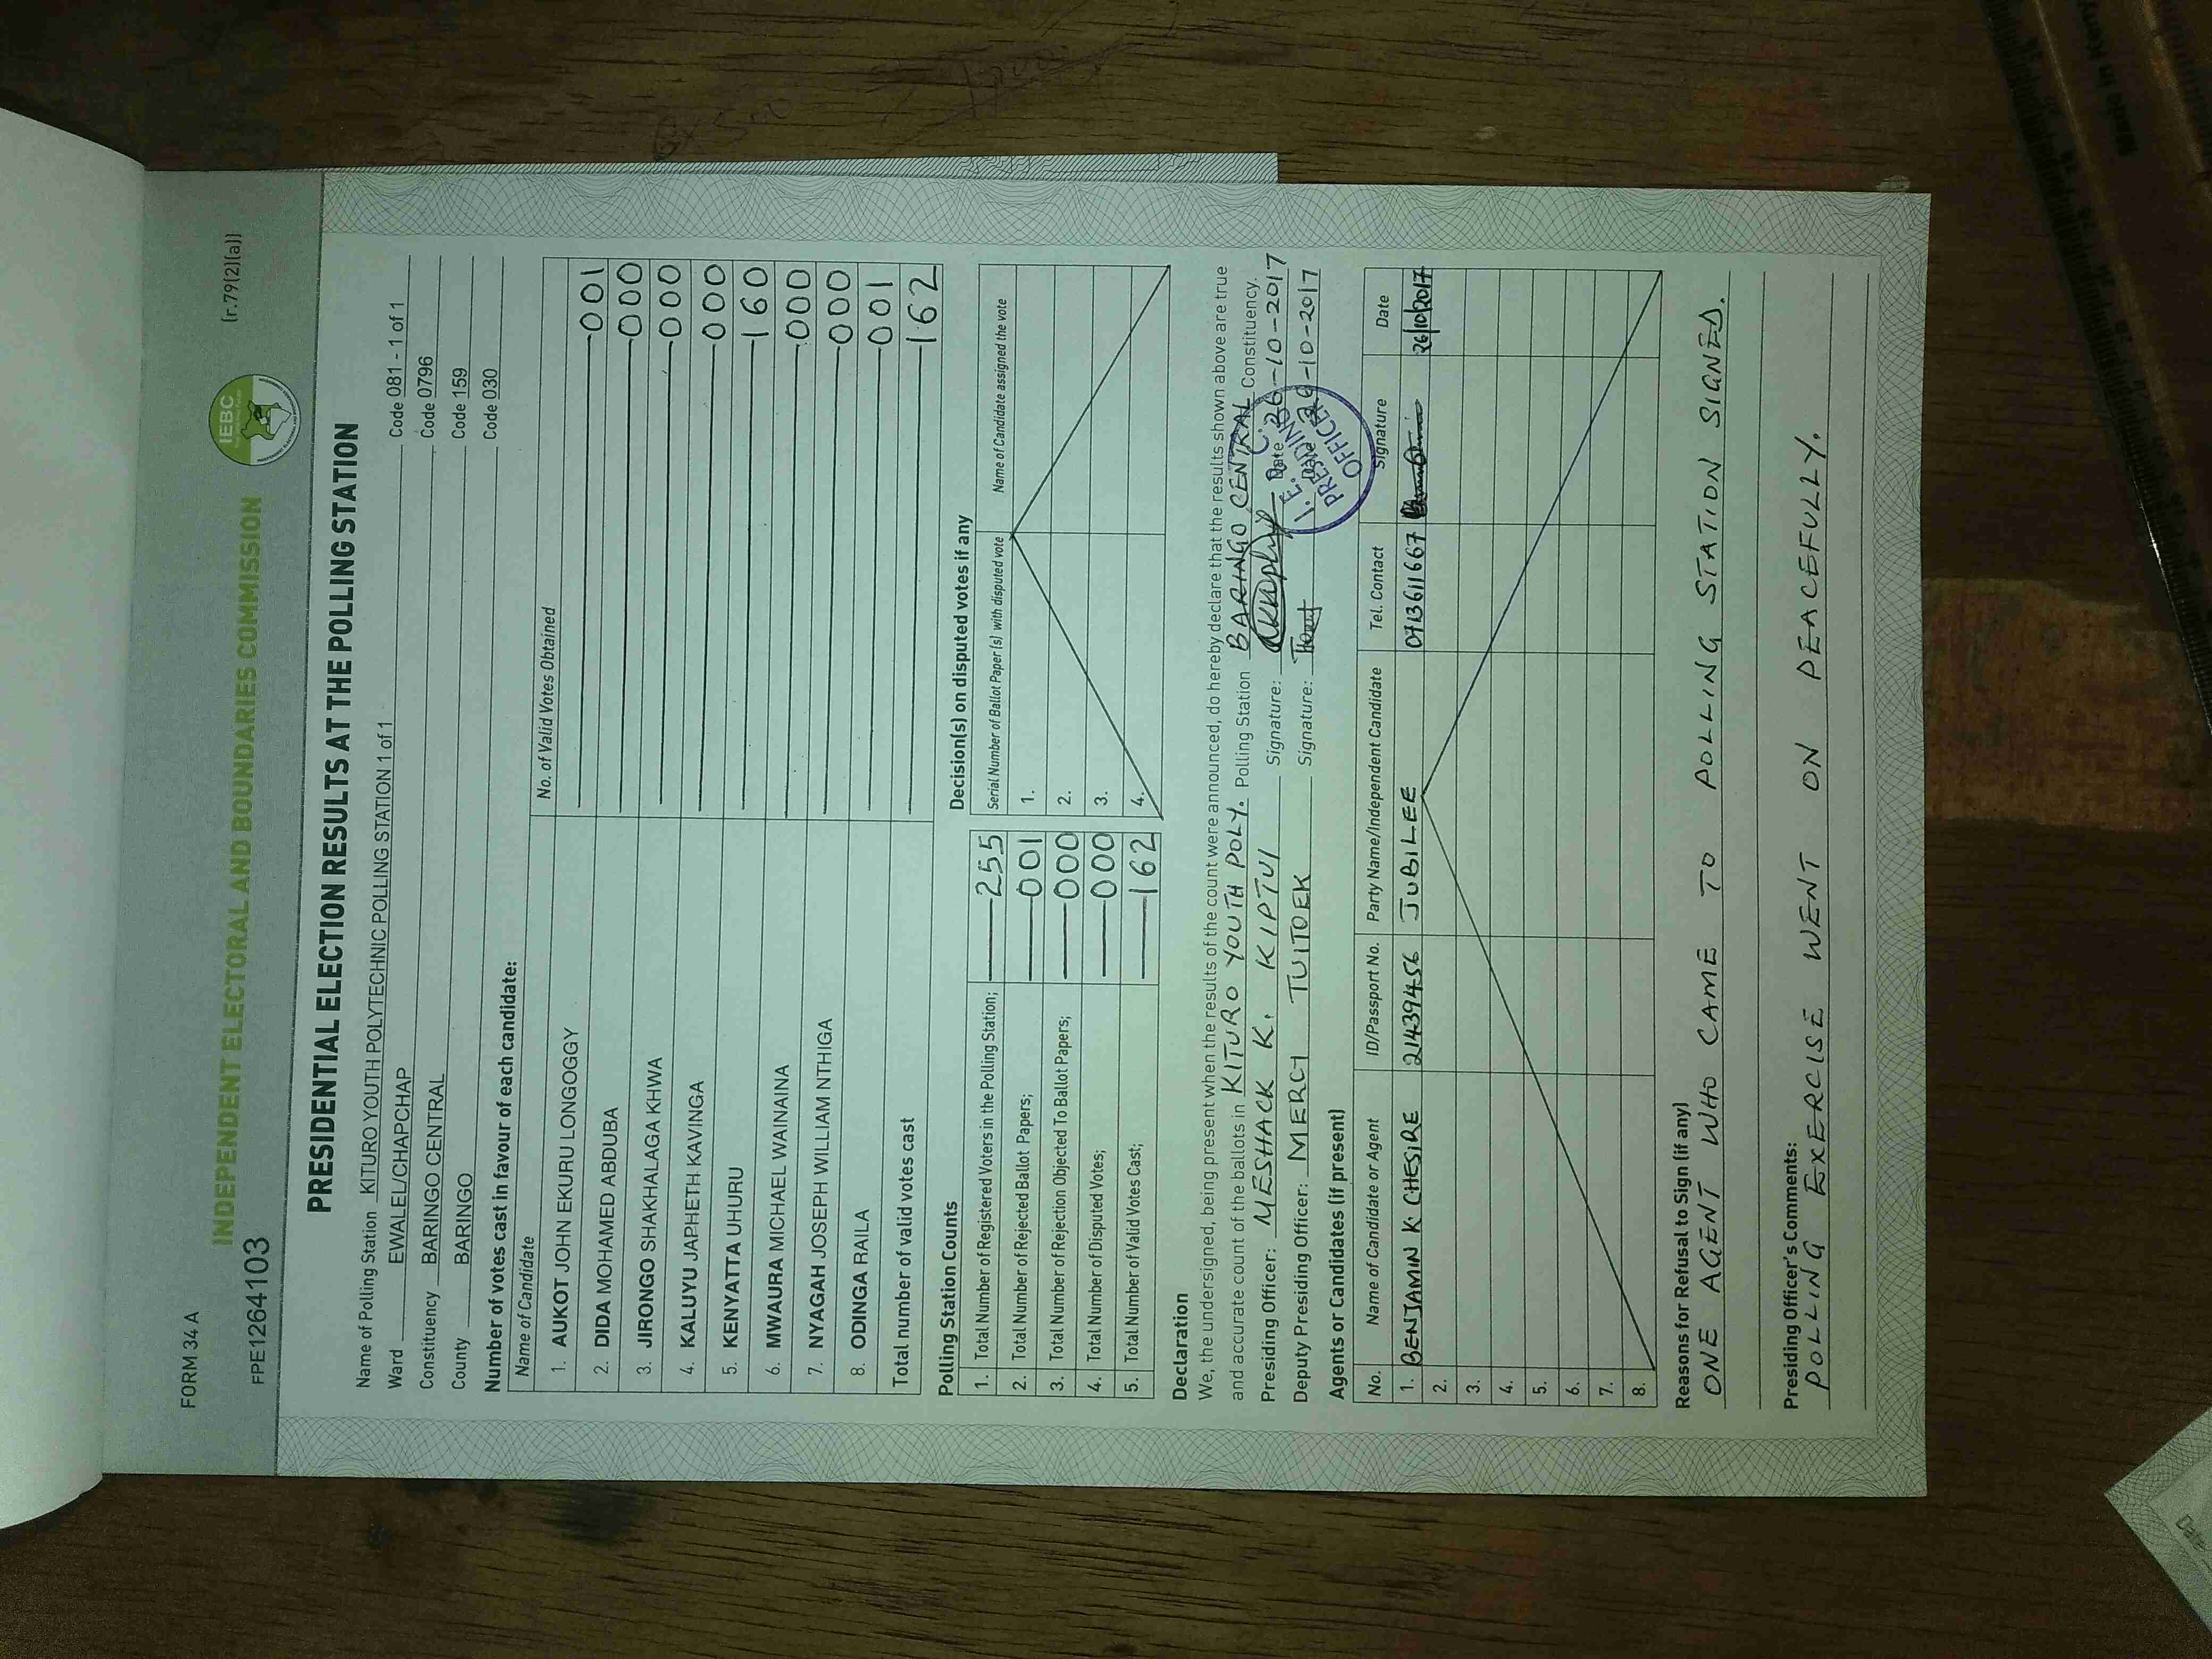 FORM 34 A
(r.79(2)(a))
IEBC
INDEPENDENT ELECTORAL AND BOUNDARIES COMMISSION
FPE1264103
PRESIDENTIAL ELECTION RESULTS AT THE POLLING STATION
Name of Polling Station KITURO YOUTH POLYTECHNIC POLLING STATION 1 of 1 Code 081 - 1 of 1
Ward EWALEL/CHAPCHAP Code 0796
Constituency BARINGO CENTRAL Code 159
County BARINGO Code 030
Number of votes cast in favour of each candidate:
Name of Candidate No. of Valid Votes Obtained
1. AUKOT JOHN EKURU LONGOGGY 001
2. DIDA MOHAMED ABDUBA 000
3. JIRONGO SHAKHALAGA KHWA 000
4. KALUYU JAPHETH KAVINGA 000
5. KENYATTA UHURU 160
6. MWAURA MICHAEL WAINAINA 000
7. NYAGAH JOSEPH WILLIAM NTHIGA 000
8. ODINGA RAILA 001
Total number of valid votes cast 162
Polling Station Counts
1. Total Number of Registered Voters in the Polling Station; 255
2. Total Number of Rejected Ballot Papers; 001
3. Total Number of Rejection Objected To Ballot Papers; 000
4. Total Number of Disputed Votes; 000
5. Total Number of Valid Votes Cast; 162
Decision(s) on disputed votes if any
Serial Number of Ballot Paper (s) with disputed vote Name of Candidate assigned the vote
1.
2.
3.
4.
Declaration
We, the undersigned, being present when the results of the count were announced, do hereby declare that the results shown above are true
and accurate count of the ballots in KITURO YOUTH POLY. Polling Station BARINGO CENTRAL Constituency.
Presiding Officer: MESHACK K. KIPTUI Signature: Date 26-10-2017
Deputy Presiding Officer: MERCY TUITOEK Signature: Date 26-10-2017
I.E.B.C.
PRESIDING
OFFICER
Agents or Candidates (if present)
No. Name of Candidate or Agent ID/Passport No. Party Name/Independent Candidate Tel. Contact Signature Date
1. BENJAMIN K CHESIRE 21439456 JUBILEE 0713611667 26/10/2017
2.
3.
4.
5.
6.
7.
8.
Reasons for Refusal to Sign (if any)
ONE AGENT WHO CAME TO POLLING STATION SIGNED.
Presiding Officer's Comments:
POLLING EXERCISE WENT ON PEACEFULLY.